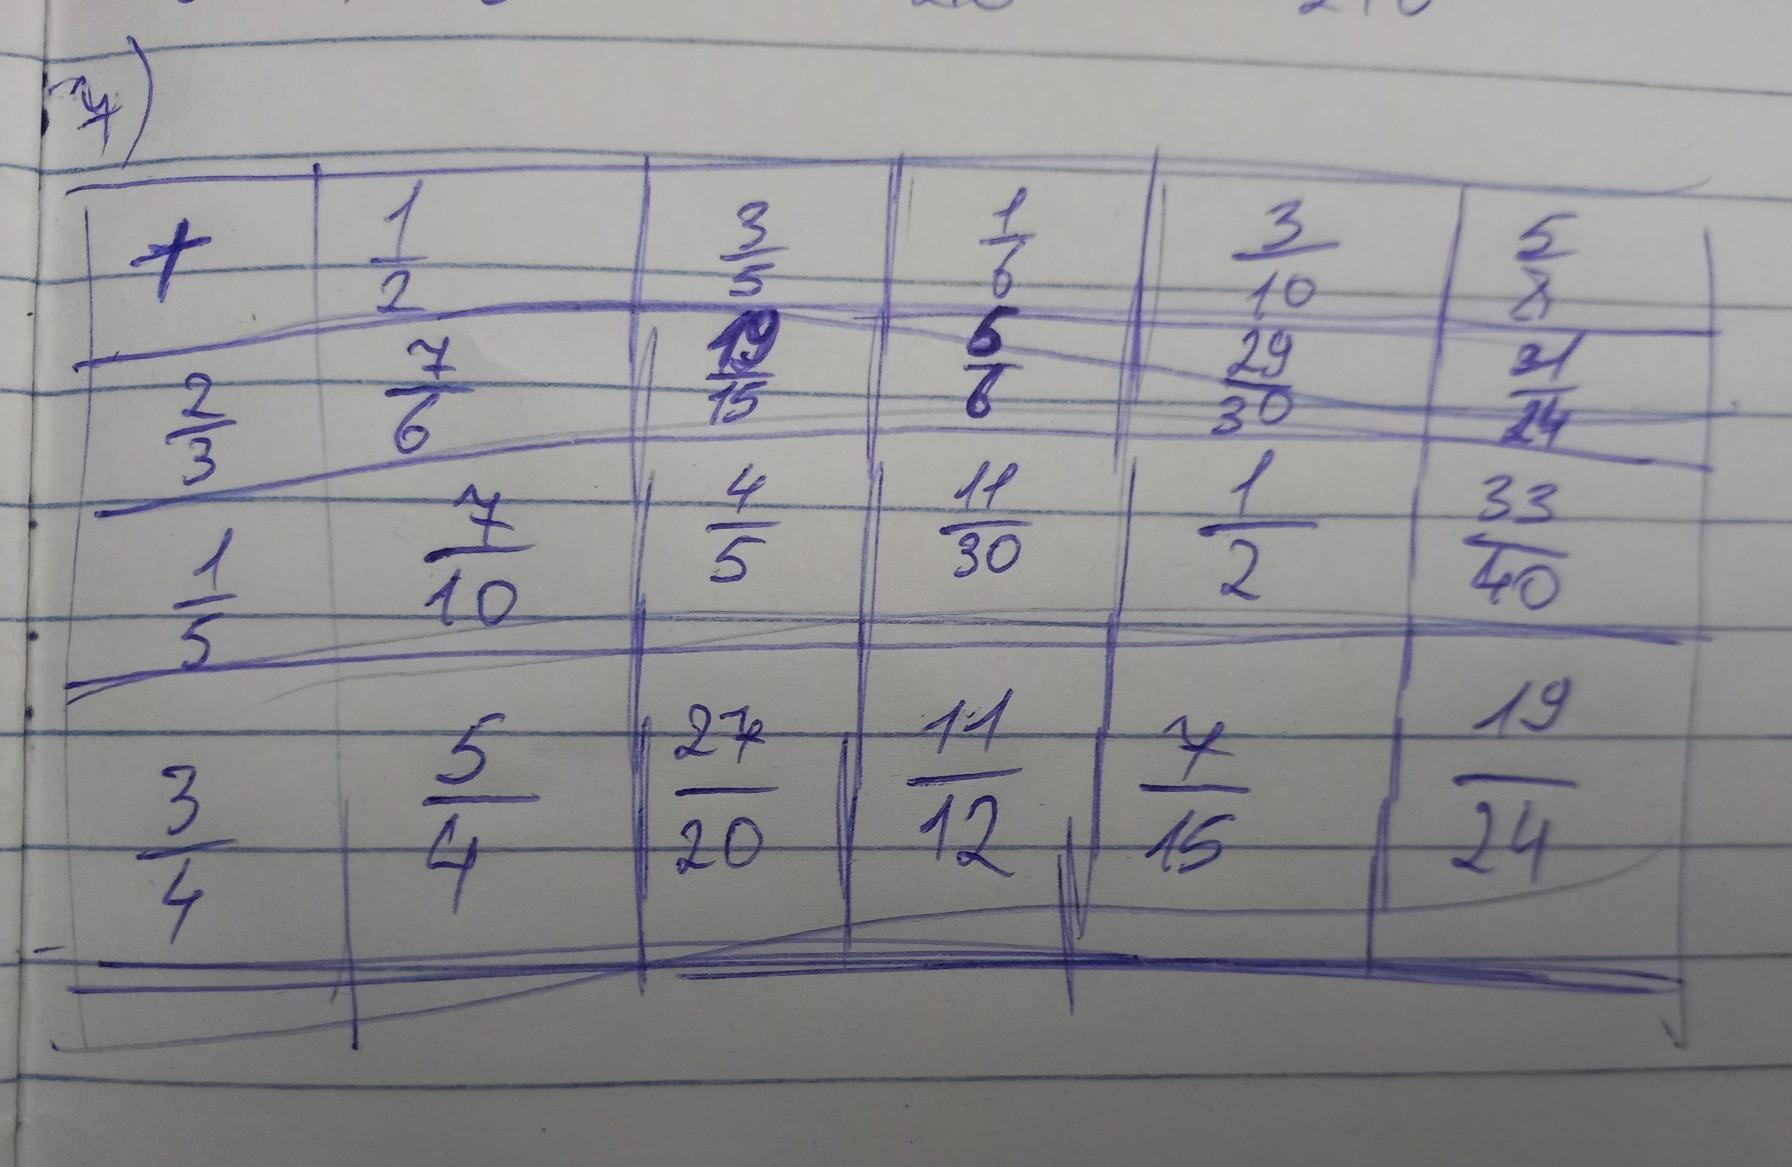 7)
+ 1/2 3/5 1/6 3/10 5/8
2/3 7/6 19/15 5/6 29/30 31/24
1/5 7/10 4/5 11/30 1/2 33/40
3/4 5/4 27/20 11/12 7/15 19/24